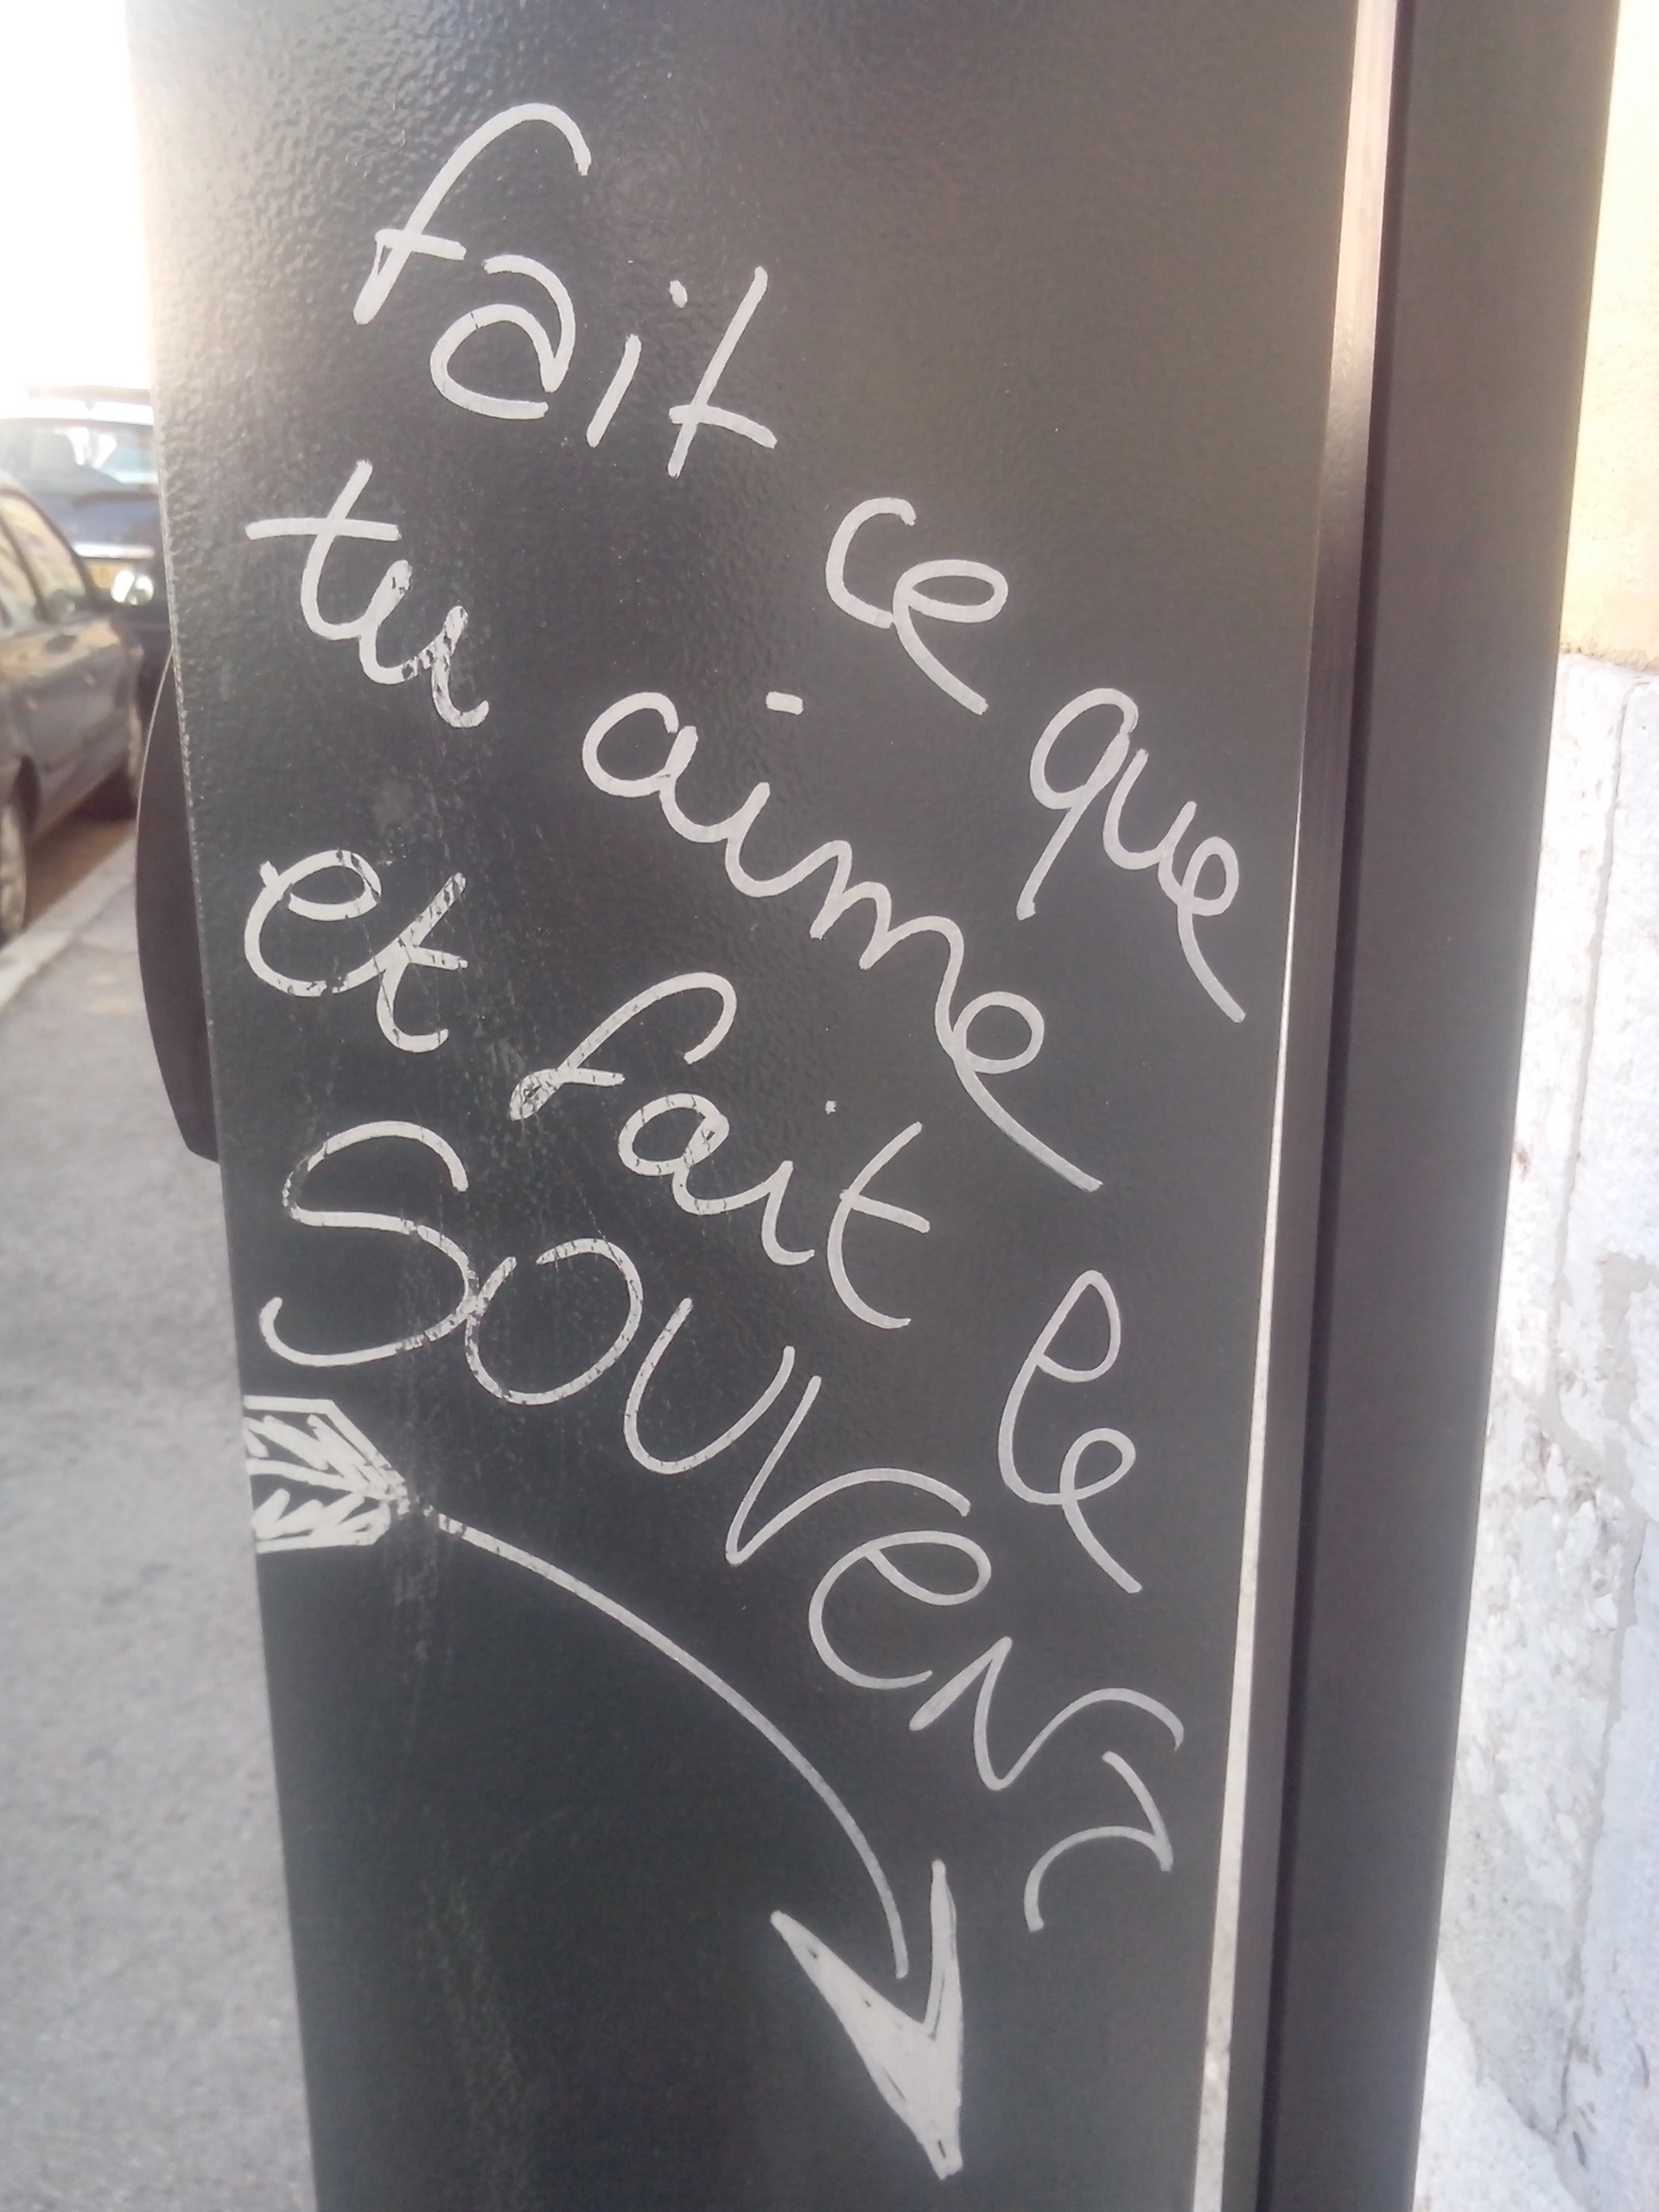 fait ce que
tu aime
et fait le
Souvent